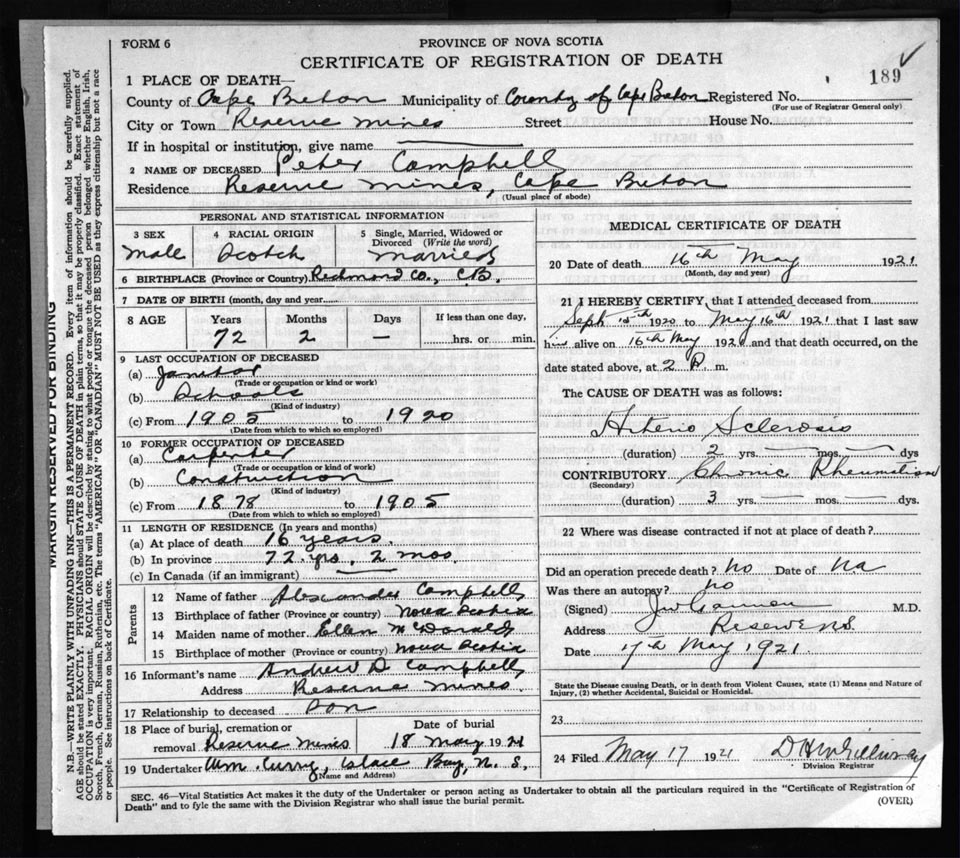 FORM 6
PROVINCE OF NOVA SCOTIA
CERTIFICATE OF REGISTRATION OF DEATH
189
1 PLACE OF DEATH—
County of Cape Breton Municipality of County of Cape Breton Registered No.
(For use of Registrar General only)
City or Town Reserve Mines Street House No.
If in hospital or institution, give name
2 NAME OF DECEASED Peter Campbell
Residence Reserve Mines, Cape Breton
(Usual place of abode)
PERSONAL AND STATISTICAL INFORMATION
3 SEX
Male
4 RACIAL ORIGIN
Scotch
5 Single, Married, Widowed or Divorced (Write the word)
Married
6 BIRTHPLACE (Province or Country) Richmond Co., C.B.
7 DATE OF BIRTH (month, day and year
8 AGE Years Months Days If less than one day,
72 2 — hrs. or min.
9 LAST OCCUPATION OF DECEASED
(a) Janitor
(Trade or occupation or kind or work)
(b) Schools
(Kind of industry)
(c) From 1905 to 1920
(Date from which to which so employed)
10 FORMER OCCUPATION OF DECEASED
(a) Carpenter
(Trade or occupation or kind of work)
(b) Construction
(Kind of industry)
(c) From 1878 to 1905
(Date from which to which so employed)
11 LENGTH OF RESIDENCE (In years and months)
(a) At place of death 16 years.
(b) In province 72 yrs, 2 mos.
(c) In Canada (if an immigrant)
Parents
12 Name of father Alexander Campbell
13 Birthplace of father (Province or country) Nova Scotia
14 Maiden name of mother Ellen McDonald
15 Birthplace of mother (Province or country) Nova Scotia
16 Informant's name Andrew D. Campbell
Address Reserve Mines.
17 Relationship to deceased Son
18 Place of burial, cremation or removal Reserve Mines
Date of burial
18 May 1921
19 Undertaker Wm. Curry, Glace Bay, N. S.
(Name and Address)
MEDICAL CERTIFICATE OF DEATH
20 Date of death 16th May 1921
(Month, day and year)
21 I HEREBY CERTIFY, that I attended deceased from
Sept 1920 to May 16th 1921 that I last saw
him alive on 16th May 192 and that death occurred, on the
date stated above, at 2 P. m.
The CAUSE OF DEATH was as follows:
Arterio Sclerosis
(duration) 2 yrs. mos. dys
CONTRIBUTORY Chronic Rheumatism
(Secondary)
(duration) 3 yrs. mos. dys.
22 Where was disease contracted if not at place of death?
Did an operation precede death? No Date of Na
Was there an autopsy? no
(Signed) M.D.
Address Reserve N.S.
Date 17th May 1921.
State the Disease causing Death, or in death from Violent Causes, state (1) Means and Nature of
Injury, (2) whether Accidental, Suicidal or Homicidal.
23
24 Filed May 17 1921 D H McGillivray
Division Registrar
SEC. 46—Vital Statistics Act makes it the duty of the Undertaker or person acting as Undertaker to obtain all the particulars required in the "Certificate of Registration of
Death" and to fyle the same with the Division Registrar who shall issue the burial permit.
(OVER)
MARGIN RESERVED FOR BINDING
N.B.—WRITE PLAINLY WITH UNFADING INK—THIS IS A PERMANENT RECORD. Every item of information should be carefully supplied.
AGE should be stated EXACTLY. PHYSICIANS should STATE CAUSE OF DEATH in plain terms, so that it may be properly classified. Exact statement of
OCCUPATION is very important. RACIAL ORIGIN will be described by stating to what people or tongue the deceased person belonged whether English, Irish,
Scotch, French, German, Russian, Ruthenian, etc. The terms "AMERICAN" OR "CANADIAN" MUST NOT BE USED as they express citizenship but not a race
or people. See instructions on back of Certificate.